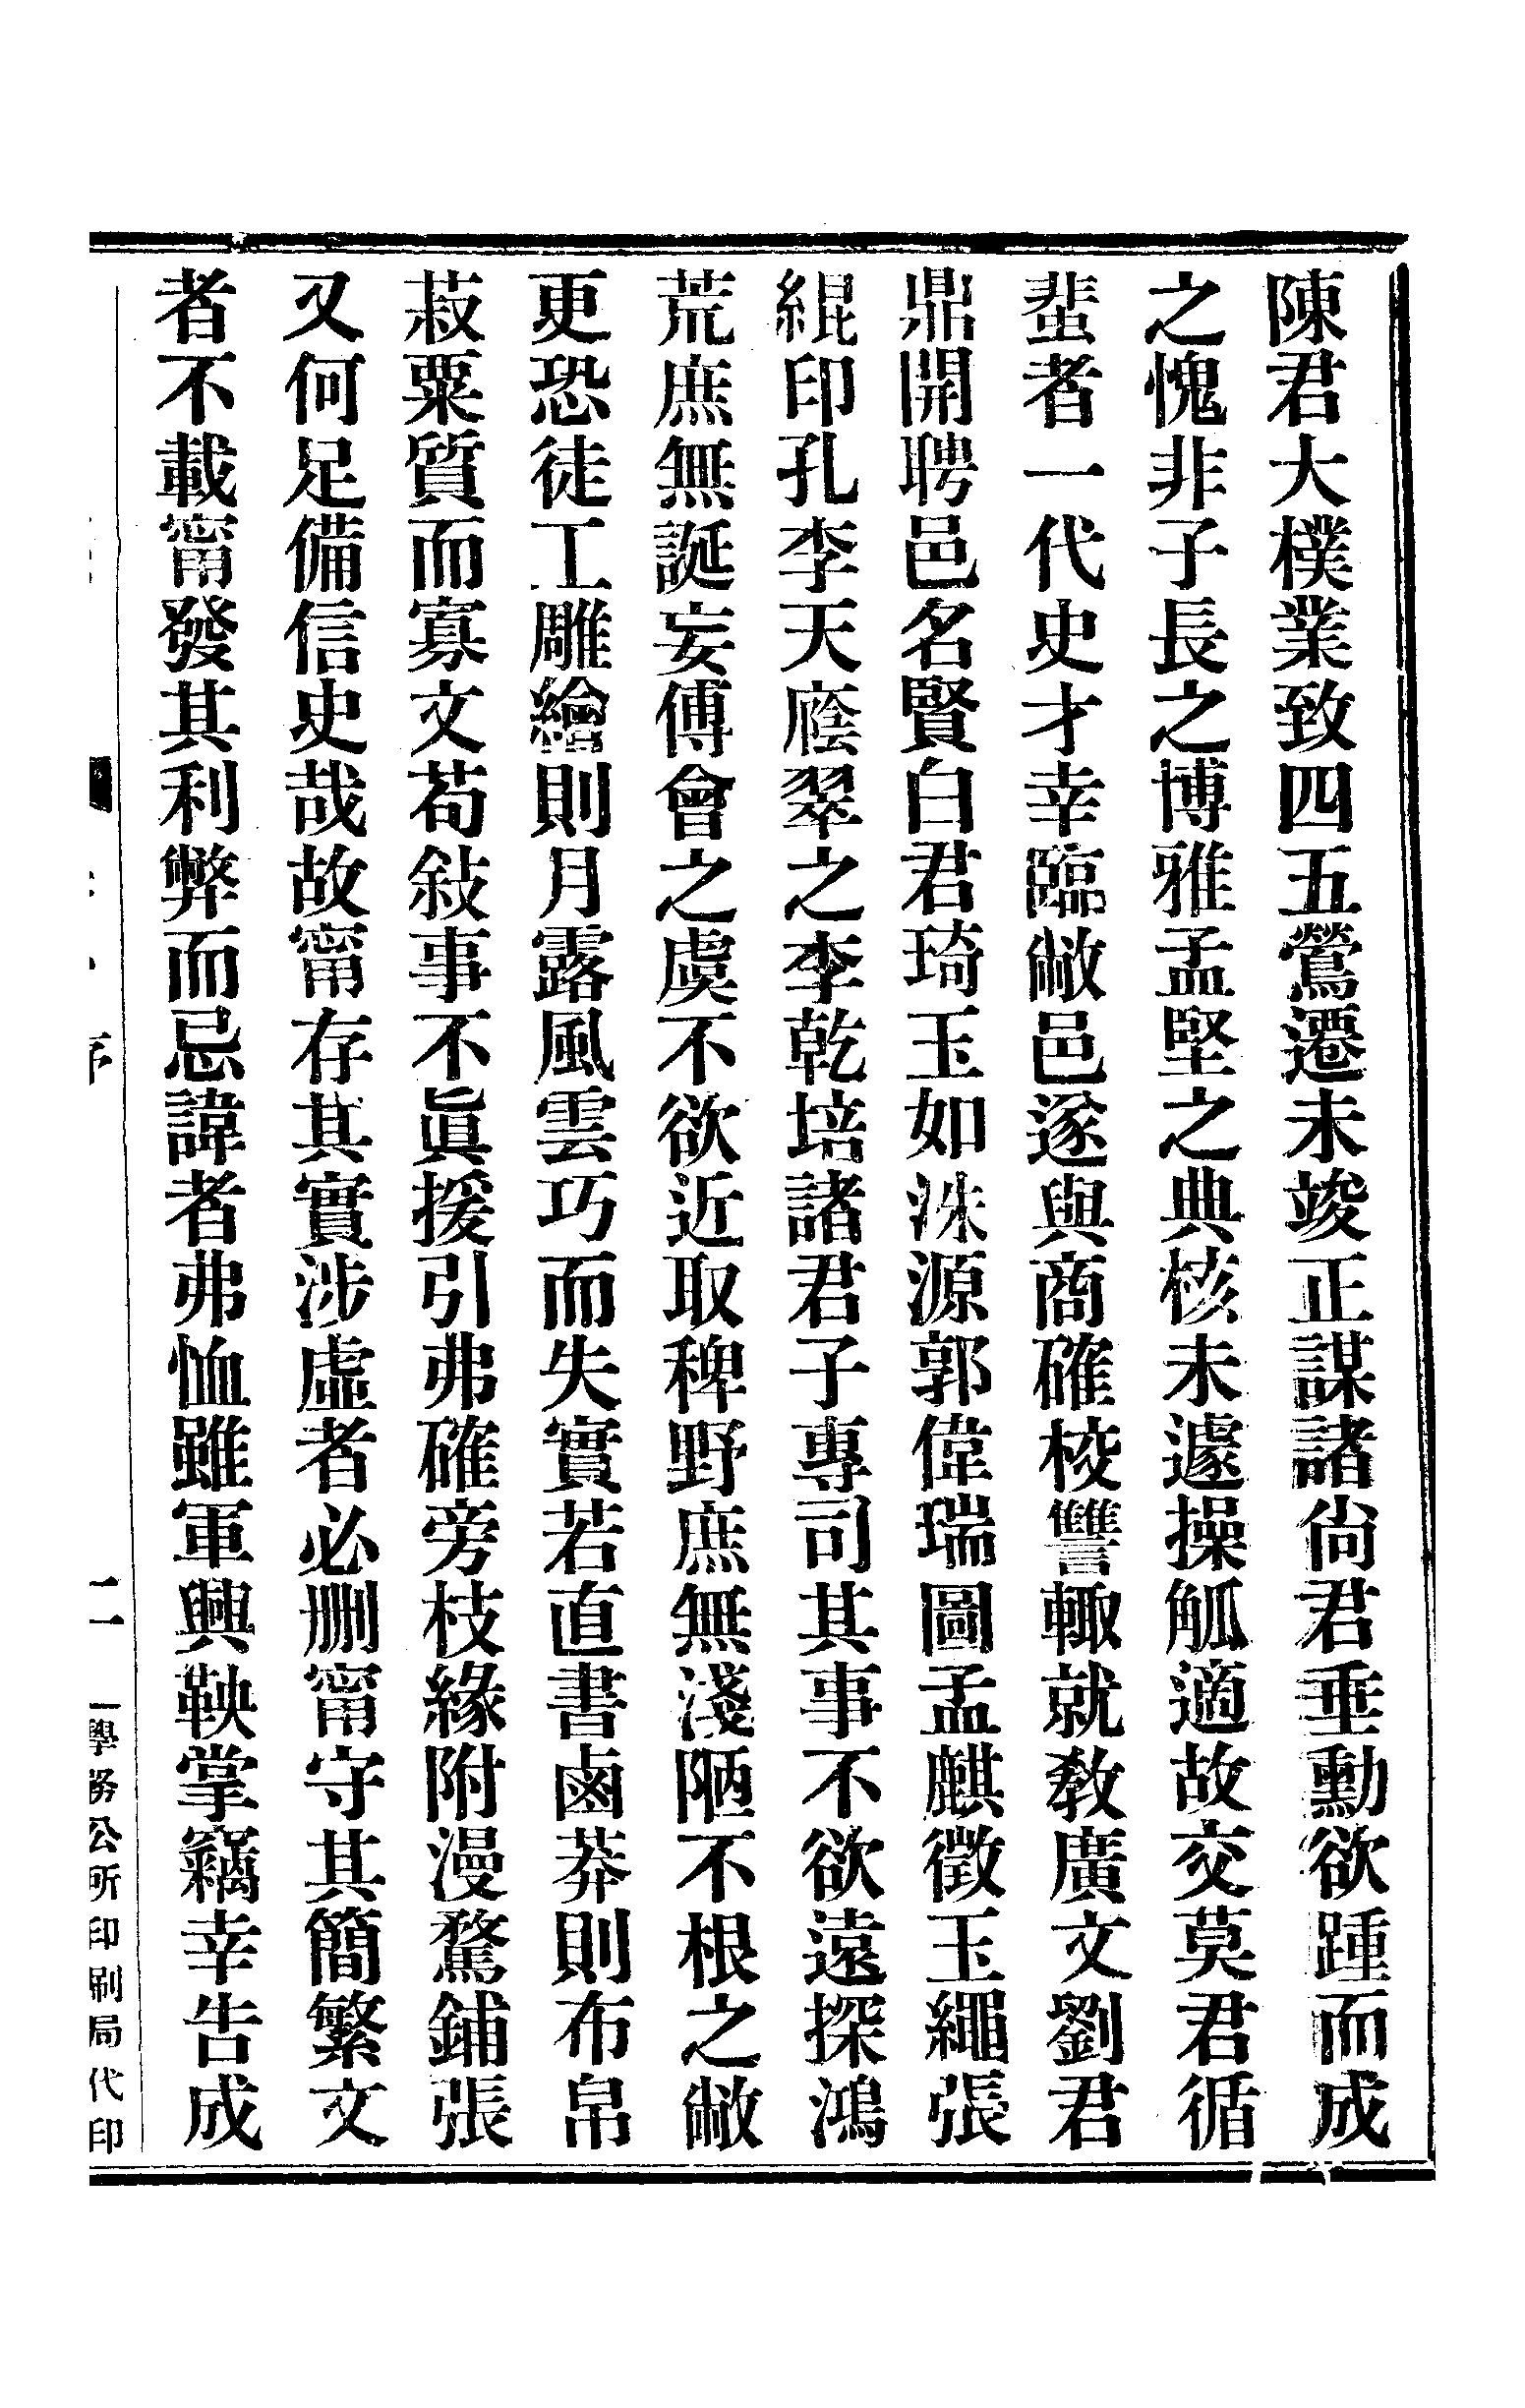 陳君大樸業致四五鶯遷未竣正謀諸尙君垂勳欲踵而成
之愧非子長之博雅孟堅之典核未遽操觚適故交莫君循
蜚者一代史才幸臨敝邑遂與商確校讐輙就敎廣文劉君
鼎開聘邑名賢白君琦玉如洙源郭偉瑞圖孟麒徵玉繩張
緄印孔李天廕翠之李乾培諸君子專司其事不欲遠探鴻
荒庶無誕妄傅會之虞不欲近取稗野庶無淺陋不根之敝
更恐徒工雕繪則月露風雲巧而失實若直書鹵莽則布帛
菽粟質而寡文苟敍事不眞援引弗確旁枝緣附漫騖鋪張
又何足備信史哉故甯存其實涉虛者必删甯守其簡繁文
者不載甯發其利弊而忌諱者弗恤雖軍興鞅掌竊幸告成
序
二
學務公所印刷局代印